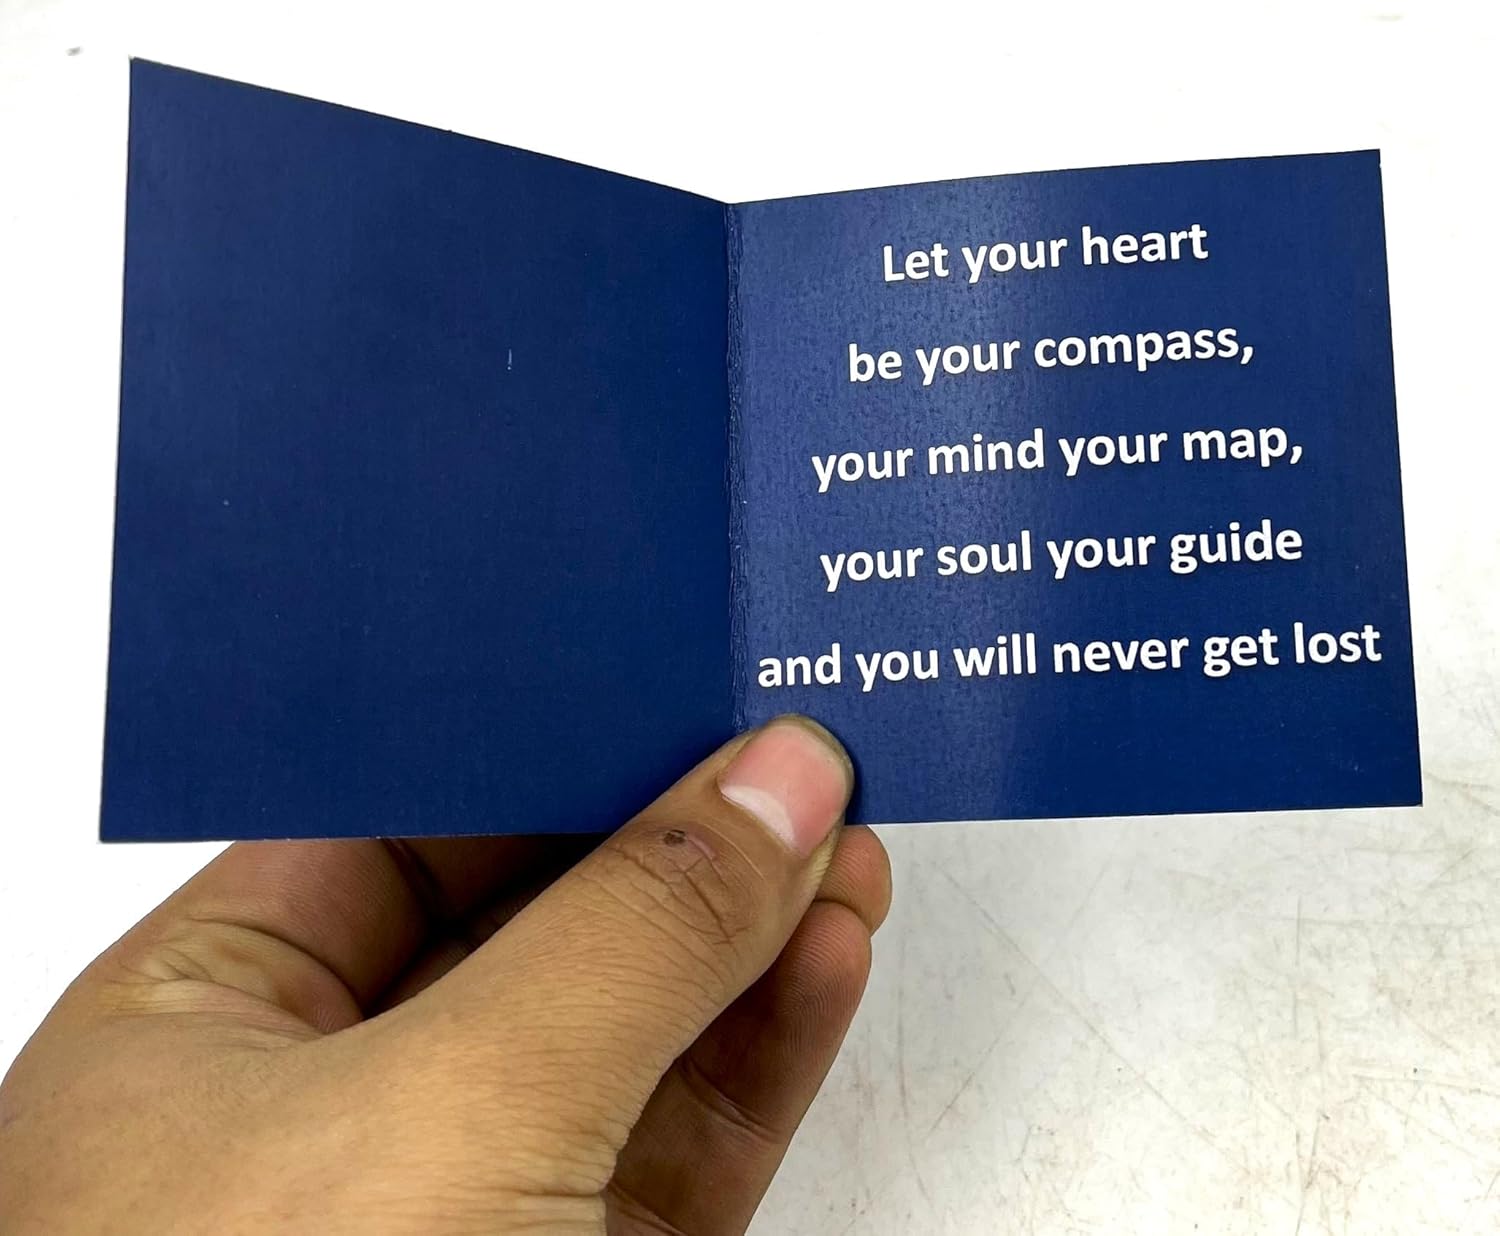 Let your heart
be your compass,
your mind your map,
your soul your guide
and you will never get lost